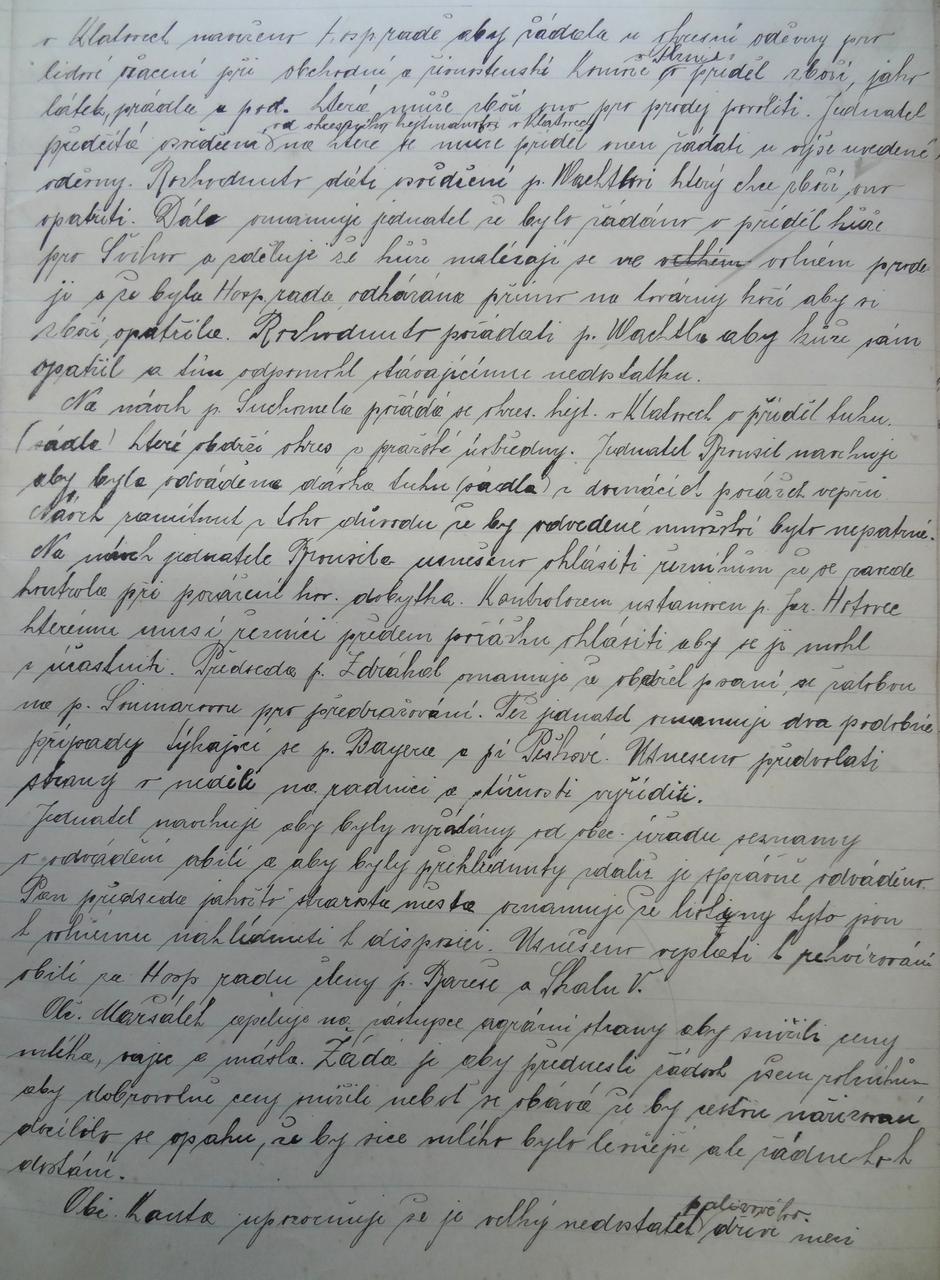 v Klatovech nařízeno Hosp radě aby žádala u okresní oděvny pro
lidové ošacení při obchodní a živnostenské Komoře v Plzni o příděl zboží, jako
látek, prádla a pod. která může zboží ono pro prodej povoliti. Jednatel
předčítá osvědčení od okresního hejtmanství v Klatovech na které se může příděl onen žádati u výše uvedené
oděvny. Rozhodnuto dáti osvědčení p. Wachtlovi který chce zboží ono
opatřiti. Dále oznamuje jednatel že bylo žádáno o příděl kůže
pro Švihov a sděluje že kůže nalézají se ve velkém volném prode-
ji a že byla Hosp. rada odkázána přímo na továrny koží aby si
zboží opatřila. Rozhodnuto požádati p. Wachtla aby kůže sám
opatřil a tím odpomohl stávajícímu nedostatku.
Na návrh p. Suchomela požádá se okres. hejt. v Klatovech o příděl tuku.
(sádla) které obdrží okres z pražské ústředny. Jednatel Brousil navrhuje
aby byla odváděna dávka tuku (sádla) z domácích porážek vepřů.
Návrh zamítnut z toho důvodu že by odvedené množství bylo nepatrné.
Na návrh jednatele Brousila usneseno ohlásiti řezníkům že se zavede
kontrola při porážení hov. dobytka. Kontrolorem ustanoven p. Jar. Hotovec
kterému musí řezníci předem porážku ohlásiti aby se jí mohl
z účastniti. Předseda p. Zdráhal oznamuje že obdržel psaní, se žalobou
na p. Sommerovou pro předražování. Též jednatel oznamuje dva podobné
případy týkající se p. Bayera a pí Peškové. Usneseno předvolati
strany v neděli na radnici a stížnosti vyříditi.
Jednatel navrhuje aby byly vyžádány od obec. úřadu seznamy
o odvádění obilí a aby byly přehlédnuty zdaliž je správně odváděno.
Pan předseda jakožto starosta města oznamuje že listiny tyto jsou
k volnému nahlédnutí k disposici. Usneseno vyslati k rekvirování
obilí za Hosp radu členy p. Bareše a Skalu V.
Obč. Maršálek apeluje na zástupce agrární strany aby snížili ceny
mléka, vajec a másla. Žádá je aby přednesli žádost všem rolníkům
aby dobrovolně ceny snížili neboť se obává že by cestou nařizování
docílilo se opaku, že by sice mléko bylo levnější ale žádné ho k
dostání.
Obč. Kanta upozorňuje že je velký nedostatek palivového dříví mezi